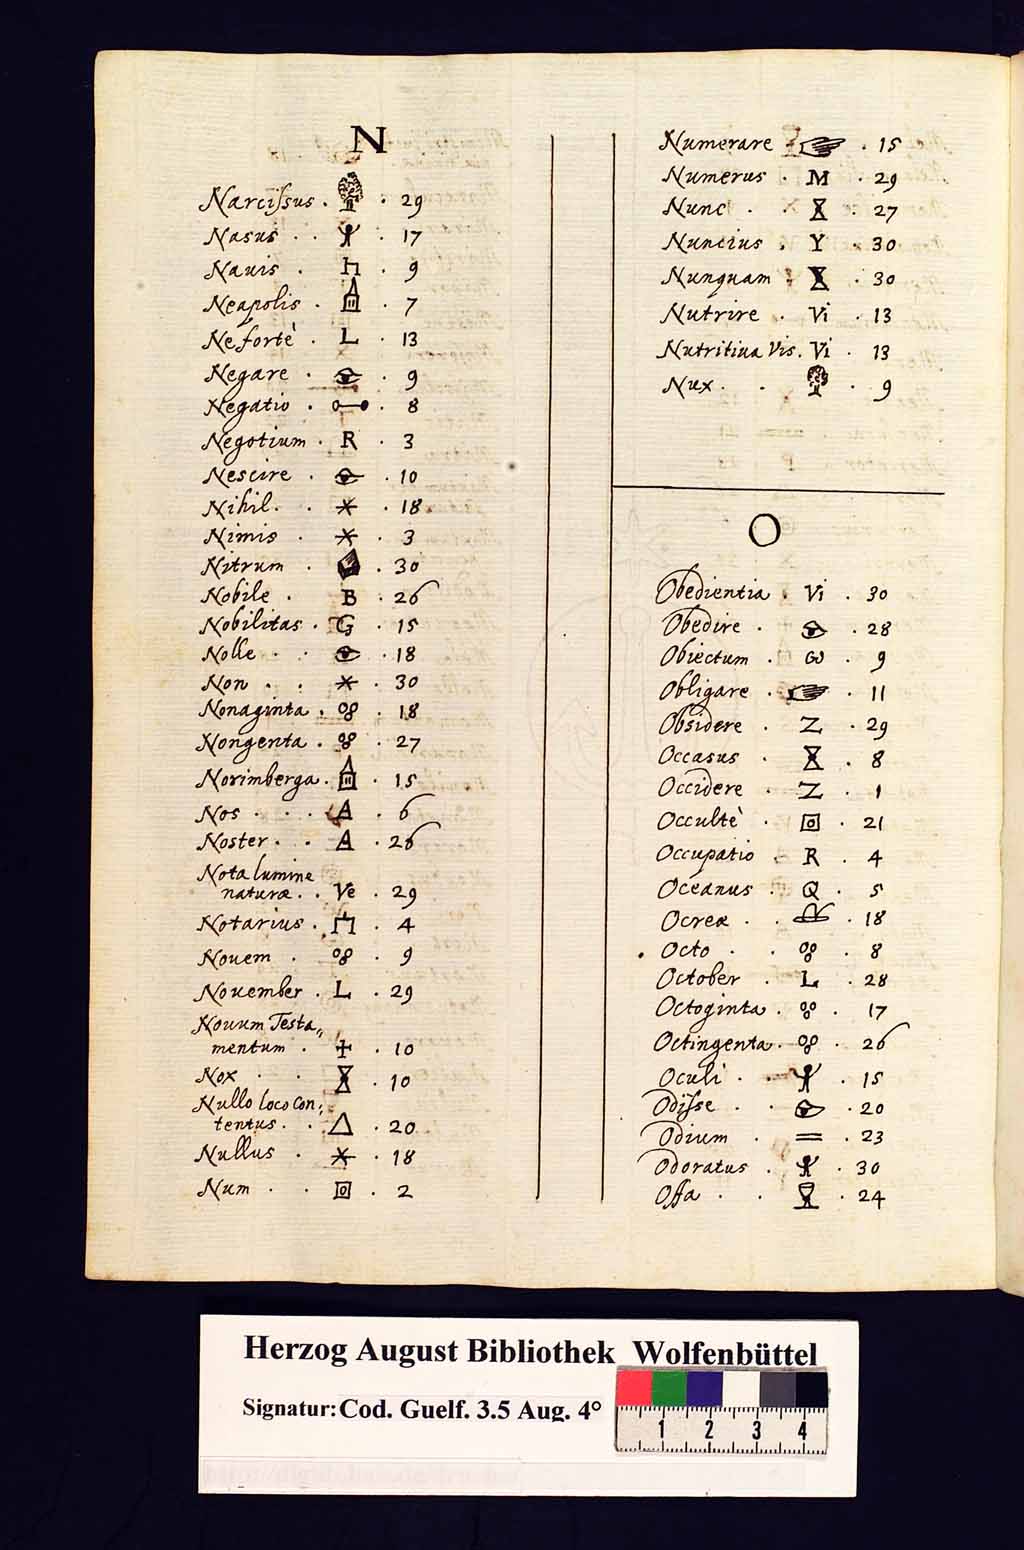 N
Narcissus. · 29
Nasus · · · 17
Nauis · · 9
Neapolis · · 7
Ne fortè · L · 13
Negare · · 9
Negatio · · 8
Negotium · R · 3
Nescire · · 10
Nihil. · * · 18
Nimis · * · 3
Nitrum · · 30
Nobile · B · 26
Nobilitas · G · 15
Nolle · · 18
Non · · * · 30
Nonaginta · · 18
Nongenta · · 27
Norimberga · · 15
Nos · · · A · 6
Noster · · A · 26
Nota lumine
naturæ · · Ve · 29
Notarius · · 4
Nouem · · 9
Nouember · L · 29
Nouum Testa„
mentum · ✢ · 10
Nox · · · 10
Nullo loco con„
tentus · · △ · 20
Nullus · * · 18
Num · · · 2
Numerare · 15
Numerus · M · 29
Nunc · · 27
Nuncius · Y · 30
Nunquam · · 30
Nutrire · Vi · 13
Nutritiua Vis. Vi · 13
Nux · · · 9
O
Obedientia · Vi · 30
Obedire · · 28
Obiectum · ω · 9
Obligare · · 11
Obsidere · Z · 29
Occasus · · 8
Occidere · Z · 1
Occultè · · 21
Occupatio · R · 4
Oceanus · Q · 5
Ocreæ · · · 18
Octo · · · 8
October · L · 28
Octoginta · · 17
Octingenta · · 26
Oculi · · · 15
Odisse · · · 20
Odium · = · 23
Odoratus · · 30
Offa · · · 24
Herzog August Bibliothek Wolfenbüttel
Signatur: Cod. Guelf. 3.5 Aug. 4°
1 2 3 4